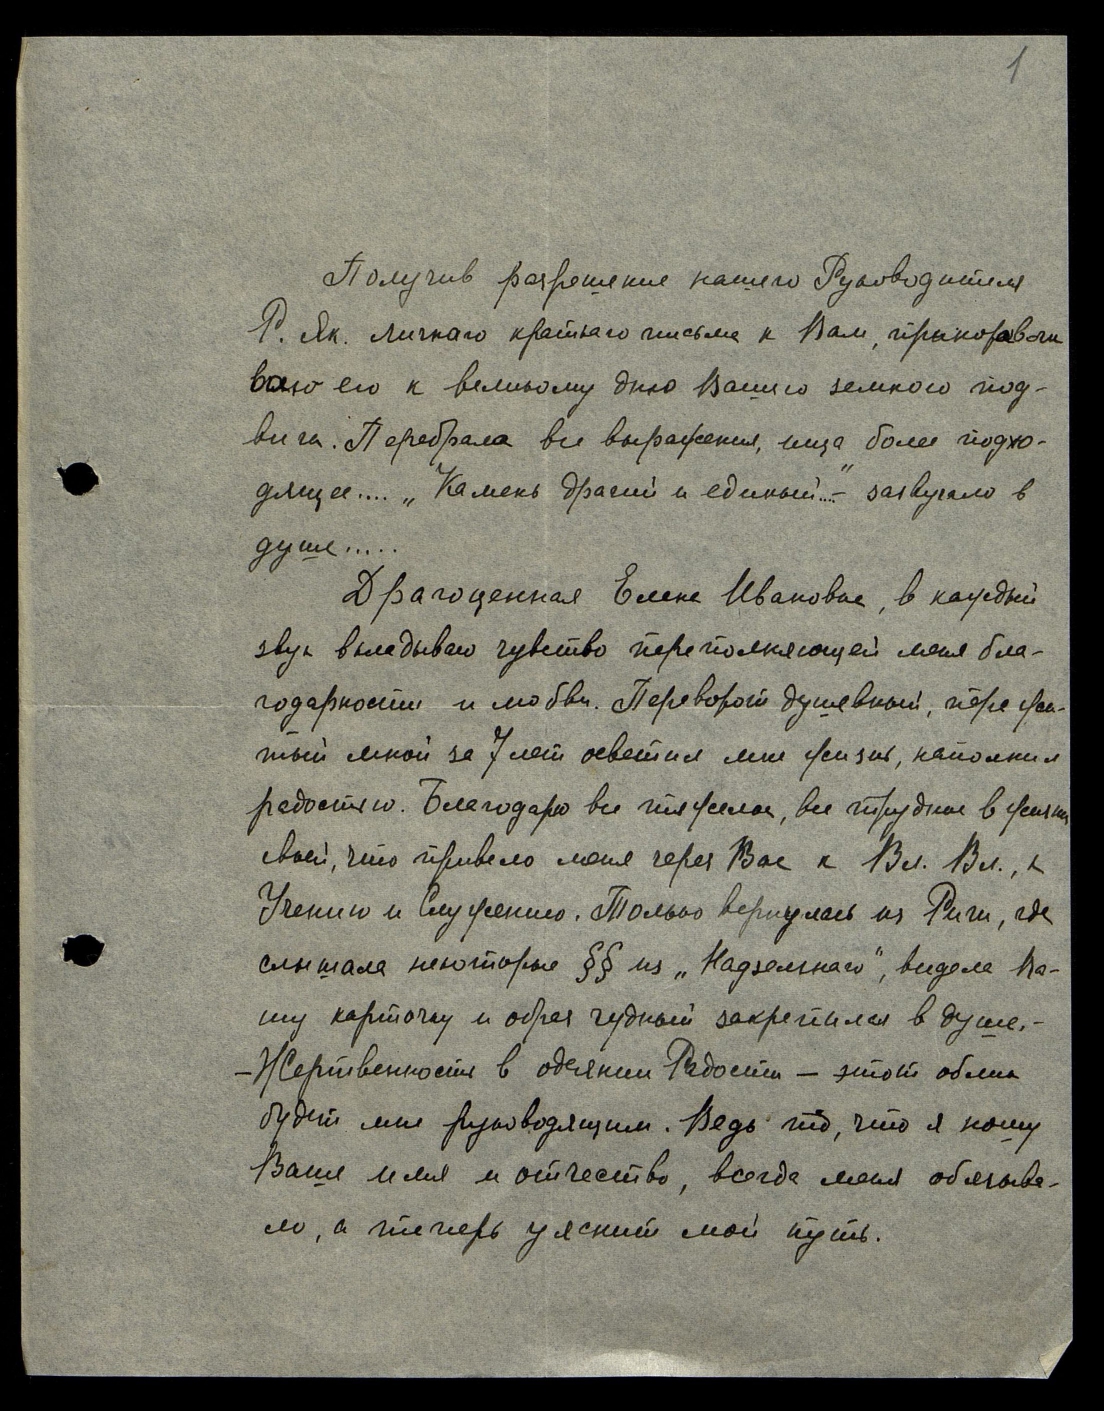 1
Получив разрешение нашего Руководителя
Р. Як. личнаго краткаго письма к Вам, приноравли
ваю его к великому дню Вашего земного под-
вига. Перебрала все выражения, ища более подхо-
дящее.... „Камень драгий и единый...“ – зазвучало в
душе.....
Драгоценная Елена Ивановна, в каждый
звук вкладываю чувство переполняющей меня бла-
годарности и любви. Переворот душевный, пережи-
тый мной за 7 лет осветил мне жизнь, наполнил
радостью. Благодарю все тяжелое, все трудное в жизни
своей, что привело меня через Вас к Вл. Вл., к
Учению и Служению. Только вернулась из Риги, где
слышала некоторые §§ из „Надземнаго“, видела Ва-
шу карточку и образ чудный закрепился в душе. –
– Жертвенность в одеянии Радости – этот облик
будет мне руководящим. Ведь то, что я ношу
Ваше имя и отчество, всегда меня обязыва-
ло, а теперь уяснит мой путь.